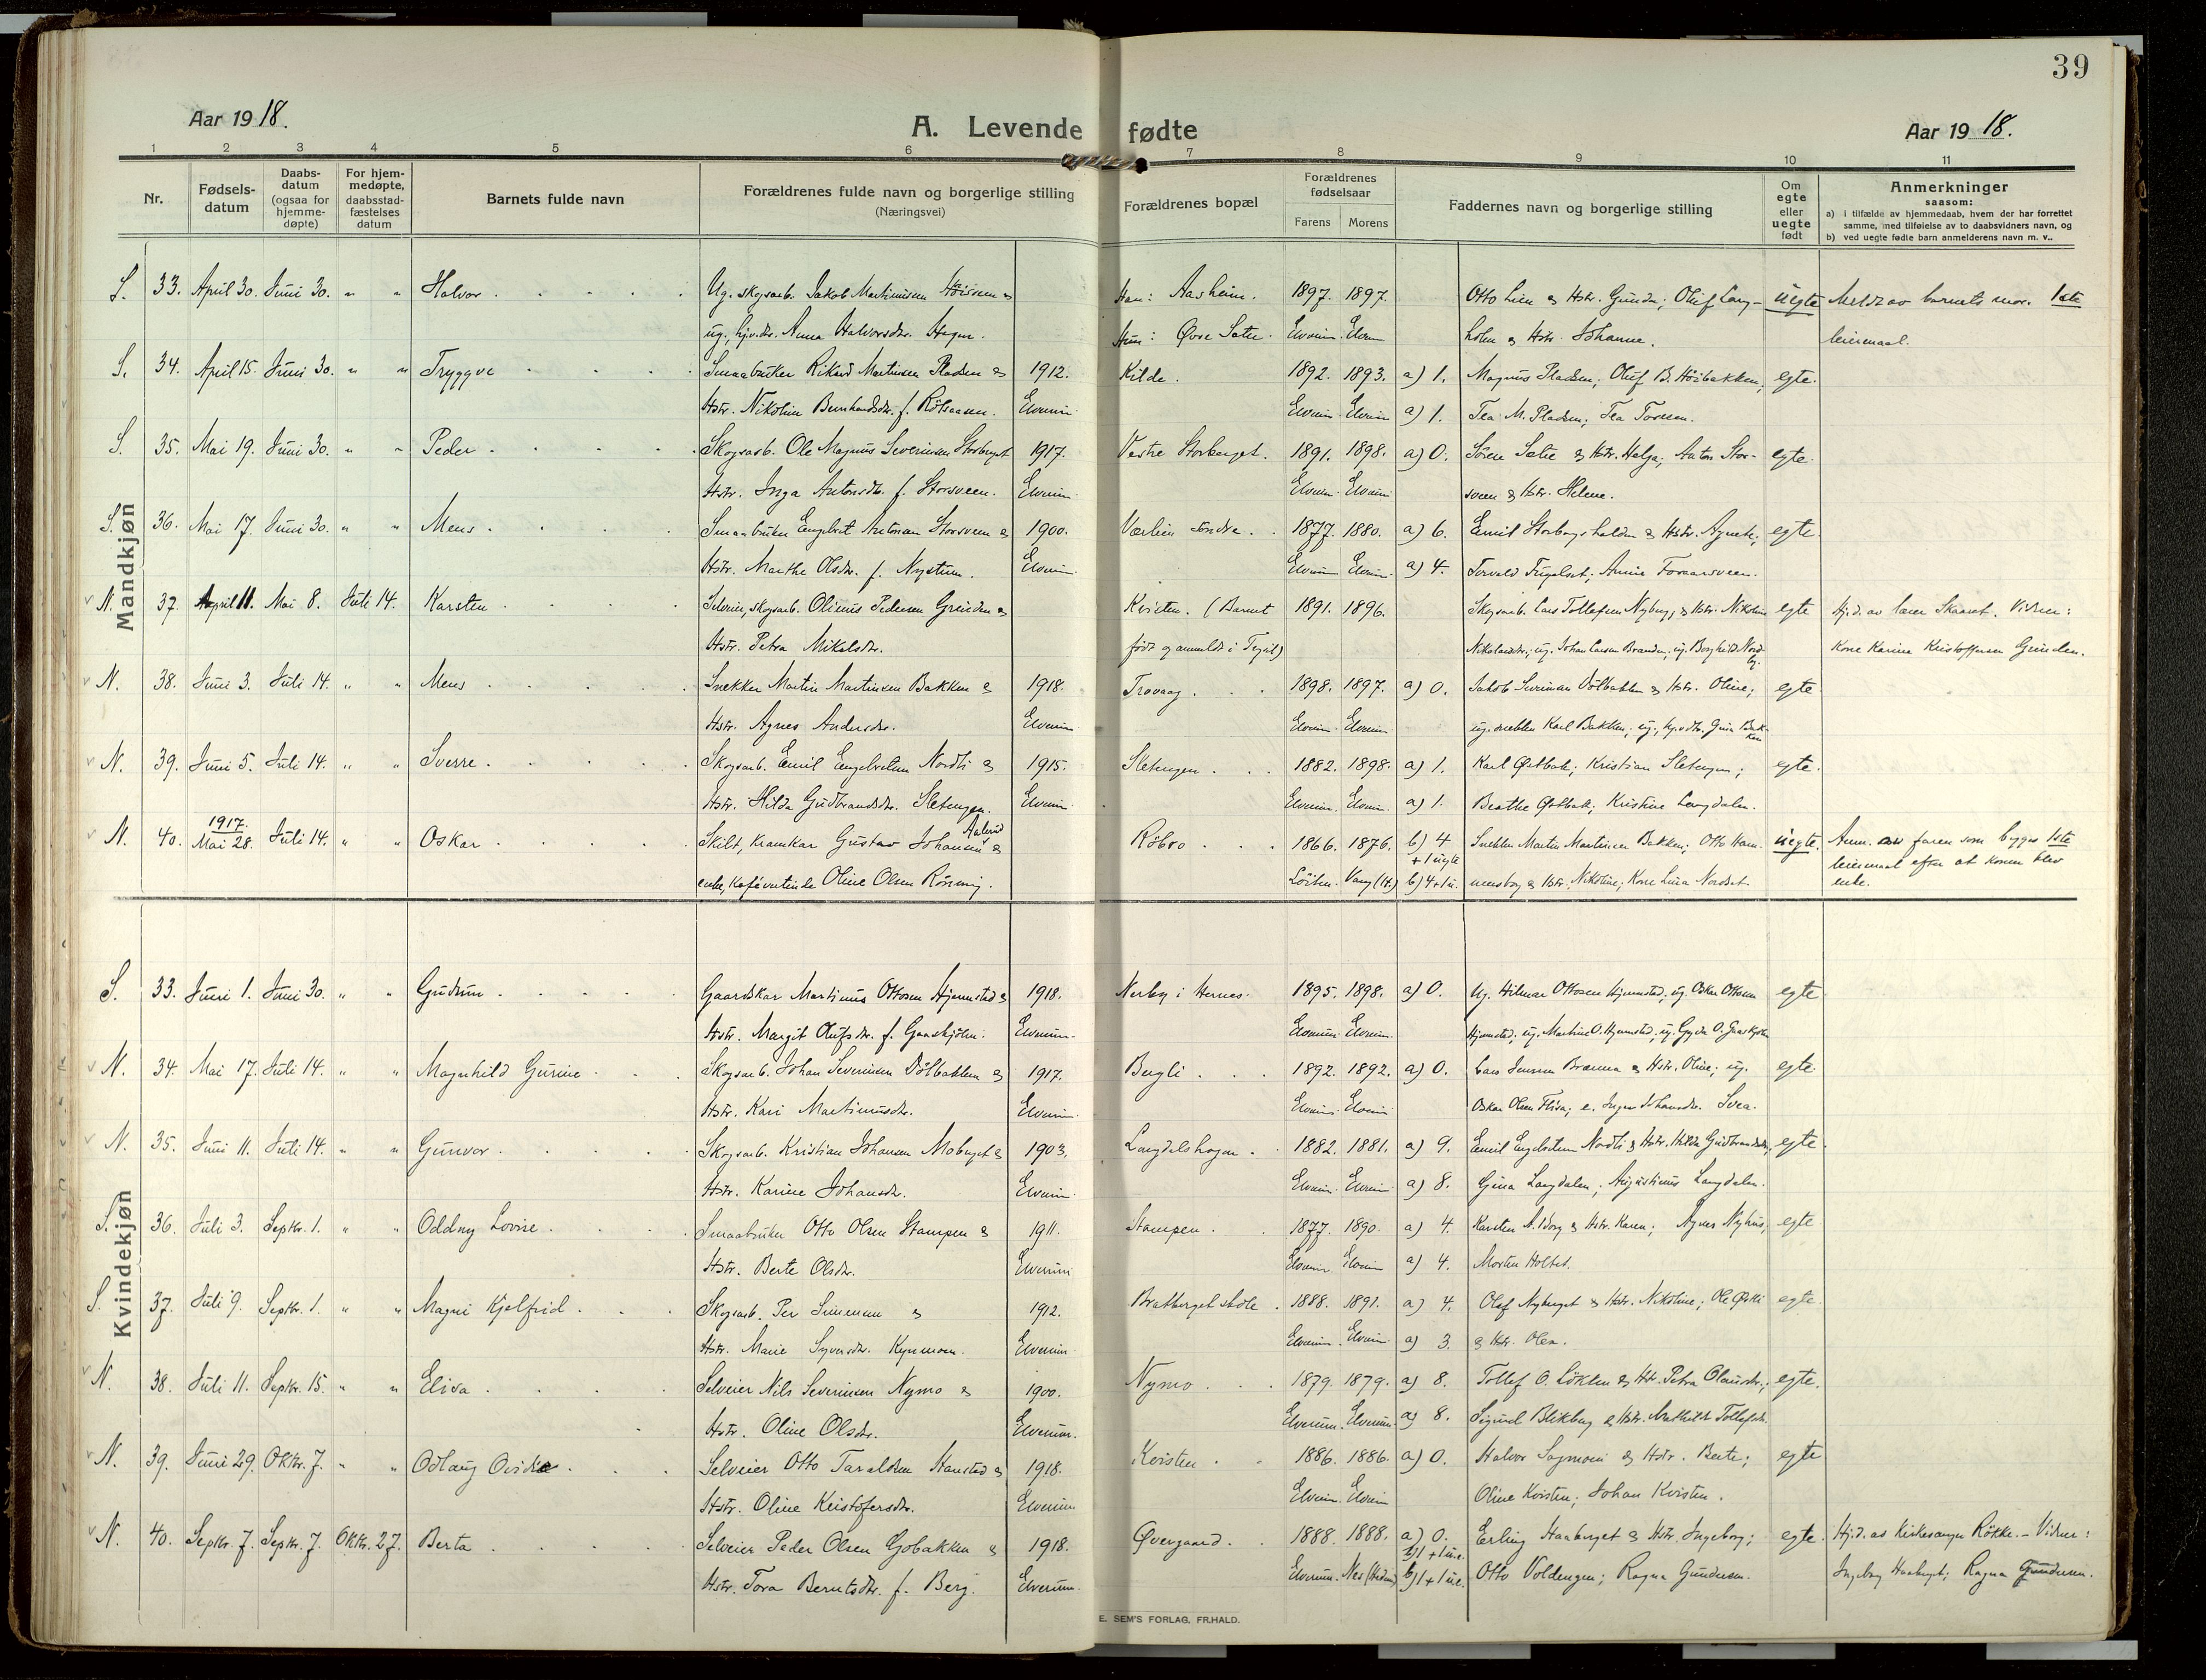 39
Aar 1918.
A. Levende fødte
Aar 1918.
1 2 3 4 5 6 7 8 9 10 11
Nr.
Fødsels-
datum
Daabs-
datum
(ogsaa for
hjemme-
døpte)
For hjem-
medøpte,
daabsstad-
fæstelses
datum
Barnets fulde navn
Forældrenes fulde navn og borgerlige stilling
(Næringsvei)
Forældrenes bopæl
Forældrenes
fødselsaar
Farens Morens
Faddernes navn og borgerlige stilling
Om
egte
eller
uegte
født
Anmerkninger
saasom:
a) i tilfælde av hjemmedaab, hvem der har forrettet
samme, med tilføielse av to daabsvidners navn, og
b) ved uegte fødte barn anmelderens navn m. v..
Mandkjøn
S. 33. April 30. Juni 30. " " Halvor Ug. skogsarb. Jakob Martinusen & Han: Aasheim. 1897. 1897. Otto Lien & Hstr. Gunda; Oluf Lang- uegte Meldt av barnets mor. 1ste
ug. hjv.dtr. Anna Halvorsdtr. Hagen. Hun: Øvre Sætre. Elverum. Elverum holen & Hstr. Johanne. leiermaal.
S. 34. April 15. Juni 30. " " Tryggve Smaabruker Rikard Martinsen Pladsen & 1912. Kilde. 1892. 1893. a) 1. Magnus Pladsen; Oluf B. Høibakken; egte.
Hstr. Nikoline Bernhardsdtr. f. Elverum Elverum. Elverum a) 1. Tea M. Pladsen; Tea Toresen.
S. 35. Mai 19. Juni 30. " " Peder Skogsarb. Ole Magnus Severinsen Storberget 1917. Vestre Storberget. 1891. 1898. a) 0. Sætre & Hstr. Helga; Anton Stor- egte.
Hstr. Inga Antonsdtr. f. Storsveen. Elverum Elverum. Elverum sveen & Hstr. Helene.
S. 36. Mai 17. Juni 30. " " Mens Smaabruker Engebret Antonsen Storsveen & 1900. søndre. 1877. 1880. a) 6. Emil Storbergshalden & Hstr. Agnete; egte.
Hstr. Marthe Olsdr. f. Nystuen. Elverum Elverum Elverum. a) 4.
N. 37. April 11. Mai 8. Juli 14. Karsten Selveier, skogsarb. Olinus Pedersen Grinden & Kvisten. (Barnet 1891. 1896. Skogsarb. Lars Tollefsen Nyberg; & Hstr. Nikoline egte Hj.d. av lærer Skaaret. Vidner:
Hstr. Petra Mikalsdtr. født og anmeldt i Trysil) Nikolaisdtr.; ug. Johan Larsen Branden; ug. Borghild Nord-
by. Kone Karine Kristoffersen Grinden.
N. 38. Juni 3. Juli 14. " " Mens Snekker Martin Martinsen Bakken & 1918. Trovaag. 1898. 1897. a) 0. Jakob Severinsen Dølbakken & Hstr. Oline; egte
Hstr. Agnes Andersdtr. Elverum Elverum. Elverum ug. snekker Karl Bakken; ug. hjv.dtr. Bak-
ken
N. 39. Juni 5. Juli 14. " " Sverre Skogsarb. Emil Nordli & 1915. Sletengen. 1882. 1898. a) 1. Karl Østbak; Kristian Sletengen; egte.
Hstr. Hilda Gudbrandsdtr. Sletengen. Elverum. Elverum. Elverum. a) 1. Beathe Østbak; Kristine Langdalen.
N. 40. 1917. Mai 28. Juli 14. " " Oskar Skilt, Gustav Johansen & Røbro 1866. 1876. b) 4 + 1 uegte Snekker Martin Martinsen Bakken; Otto Ham- uegte. Anm. av faren som begges 1ste
enke, kafévertinde Oline Olsen Rønning. Løiten. Vang (H.) b) 4 + 1 u. mersborg & Hstr. Nikoline; Kone Lina Nordset. leiermaal efter at konen blev
enke.
Kvindekjøn
S. 33. Juni 1. Juni 30. " " Gudrun Gaardskar Martinus Ottosen Hjemstad & 1918. Nerby i Hernes. 1895. 1898. a) 0. Ug. Hilmar Ottosen Hjemstad; ug. Oskar Ottosen egte
Hstr. Margit Olufsdtr. f. Gaaskjølen. Elverum. Elverum Elverum. Hjemstad; ug. Martine O. Hjemstad; ug. Gyda O. Gaaskjølen
N. 34. Mai 17. Juli 14. " " Magnhild Gurine Skogsarb. Johan Severinsen Dølbakken & 1917. Bergli 1892. 1892. a) 0. Lars Jensen Brænna & Hstr. Oline; ug. egte.
Hstr. Kari Martinusdtr. Elverum. Elverum. Elverum Oskar Olsen Flisa; e. Inger Johansdtr. Svea.
N. 35. Juni 11. Juli 14. " " Gunvor Skogsarb. Kristian Johansen Moberget & 1903. Langdalshagen 1882. 1881. a) 9. Emil Nordli & Hstr. Hilda Gudbrandsdtr.; egte.
Hstr. Karine Johansdtr. Elverum Elverum. Elverum a) 8. Gina Langdalen; Augustinus Langdalen.
S. 36. Juli 3. Septbr. 1. " " Oddny Lovise Smaabruker Otto Olsen Stampen & 1911. Stampen 1877. 1890. a) 4. Karsten A. Borg & Hstr. Karen; Agnes Nyhus; egte
Hstr. Berte Olsdtr. Elverum Elverum Elverum a) 4. Morten Holtet.
S. 37. Juli 9. Septbr. 1. " " Magni Kjelfrid Skogsarb. Per Simensen & 1912. Bratberget skole 1888. 1891. a) 4. Olaf Nyberget & Hstr. Nikoline; Ole Øski egte.
Hstr. Marie Syversdtr. Kynmoen. Elverum Elverum. Elverum a) 3. & Hstr. Olea.
N. 38. Juli 11. Septbr. 15. " " Elisa Selveier Nils Severinsen Nymo & 1900. Nymo 1879. 1879. a) 8. Tollef O. Løkken & Hstr. Petra Olausdtr.; egte.
Hstr. Oline Olsdtr. Elverum. Elverum. Elverum a) 8. Sigurd Blikberg & Hstr. Mathilde Tollefsdtr.
N. 39. Juni 29. Oktbr. 7. " " Odlaug Selveier Otto Taraldsen Hanstad & 1918. Kvisten 1886. 1886. a) 0. Halvor Sagmoen & Hstr. Berte; egte
Hstr. Oline Kristofersdtr. Elverum Elverum. Elverum Oline Kvisten; Johan Kvisten.
N. 40. Septbr. 7. Septbr. 7. Oktbr. 27. Berta Selveier Peder Olsen Gobakken & 1918. Øvergaard 1888. 1888. a) 0. b) 1 + 1 u.e. Erling Haaberget & Hstr. Ingeborg; egte. Hj.d. av kirkesanger Røkke. - Vidner:
Hstr. Tora Berntsdtr. f. Berg. Elverum. Elverum. Nes (Hedm) b) 1 + 1 u.e. Otto Voldengen; Ragna Gundersen. Ingeborg Haaberget; Ragna Gundersen.
E. SEM'S FORLAG, FR.HALD.